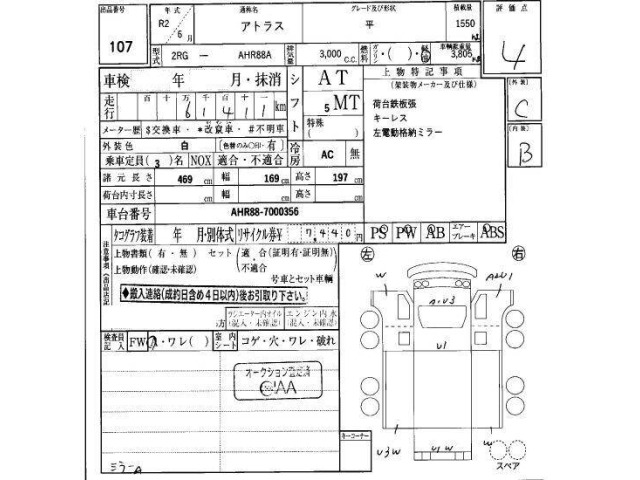 出品番号 年式 通称名 グレード及び形状 積載量 評価点
107 R2年 6月 アトラス 平 1550 kg 4
型式 2RG － AHR88A 排気量 3,000 C.C. 燃料 ガソリン・( )・軽油 車輌総重量 3,805
車検 年 月・抹消 シフト AT 5 MT 上物特記事項
(架装物メーカー及び仕様)
走行 百 十 万 千 百 十 一 61411 km 荷台鉄板張
メーター歴 $交換車・*改竄車・#不明車 特殊( ) キーレス
外装色 白 [色替のみ○印・有] 冷房 AC 無 左電動格納ミラー
乗車定員( 3 )名 NOX 適合・不適合
(外装) C
(内装) B
諸元長さ 469 cm 幅 169 cm 高さ 197 cm
荷台内寸長さ cm 幅 cm 高さ cm
車台番号 AHR88-7000356
タコグラフ装着 年 月・別体式 リサイクル券¥ 7,440円 PS PW AB エアーブレーキ ABS
注意事項(出品店記
上物書類(有・無) セット(適合(証明有・証明無)
不適合
上物動作(確認・未確認) 号車とセット車輌
◆搬入連絡(成約日含め4日以内)後お引取り下さい。
ラジエーター内オイル エンジン内水
(混入・未確認) (混入・未確認)
検査員記入 FW ・ワレ( ) 室内シート コゲ・穴・ワレ・破れ
オークション登録済
CAA
キーコーナー
左 右
W
A・U3
U1
U3W
U1W
W
スペア